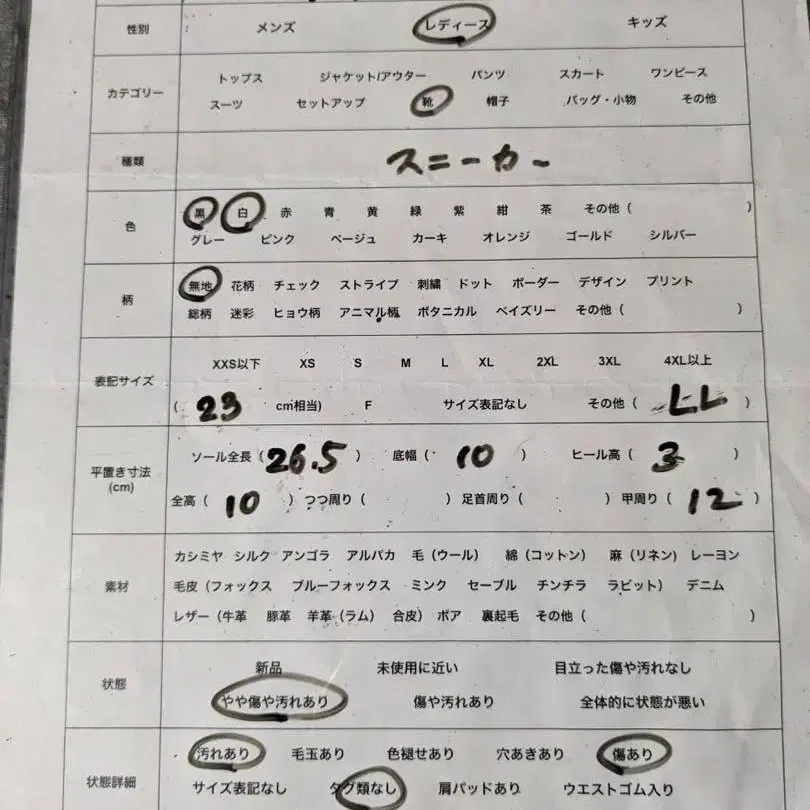 性別 メンズ レディース キッズ
カテゴリー トップス ジャケット/アウター パンツ スカート ワンピース
スーツ セットアップ 靴 帽子 バッグ・小物 その他
種類 スニーカー
色 黒 白 赤 青 黄 緑 紫 紺 茶 その他 ( )
グレー ピンク ベージュ カーキ オレンジ ゴールド シルバー
柄 無地 花柄 チェック ストライプ 刺繍 ドット ボーダー デザイン プリント
総柄 迷彩 ヒョウ柄 アニマル柄 ボタニカル ペイズリー その他 ( )
表記サイズ XXS以下 XS S M L XL 2XL 3XL 4XL以上
( 23 cm相当) F サイズ表記なし その他 ( LL )
平置き寸法 (cm) ソール全長 ( 26.5 ) 底幅 ( 10 ) ヒール高 ( 3 )
全高 ( 10 ) つつ周り ( ) 足首周り ( ) 甲周り ( 12 )
素材 カシミヤ シルク アンゴラ アルパカ 毛 (ウール) 綿 (コットン) 麻 (リネン) レーヨン
毛皮 (フォックス ブルーフォックス ミンク セーブル チンチラ ラビット) デニム
レザー (牛革 豚革 羊革 (ラム) 合皮) ボア 裏起毛 その他 ( )
状態 新品 未使用に近い 目立った傷や汚れなし
やや傷や汚れあり 傷や汚れあり 全体的に状態が悪い
状態詳細 汚れあり 毛玉あり 色褪せあり 穴あきあり 傷あり
サイズ表記なし タグ類なし 肩パッドあり ウエストゴム入り